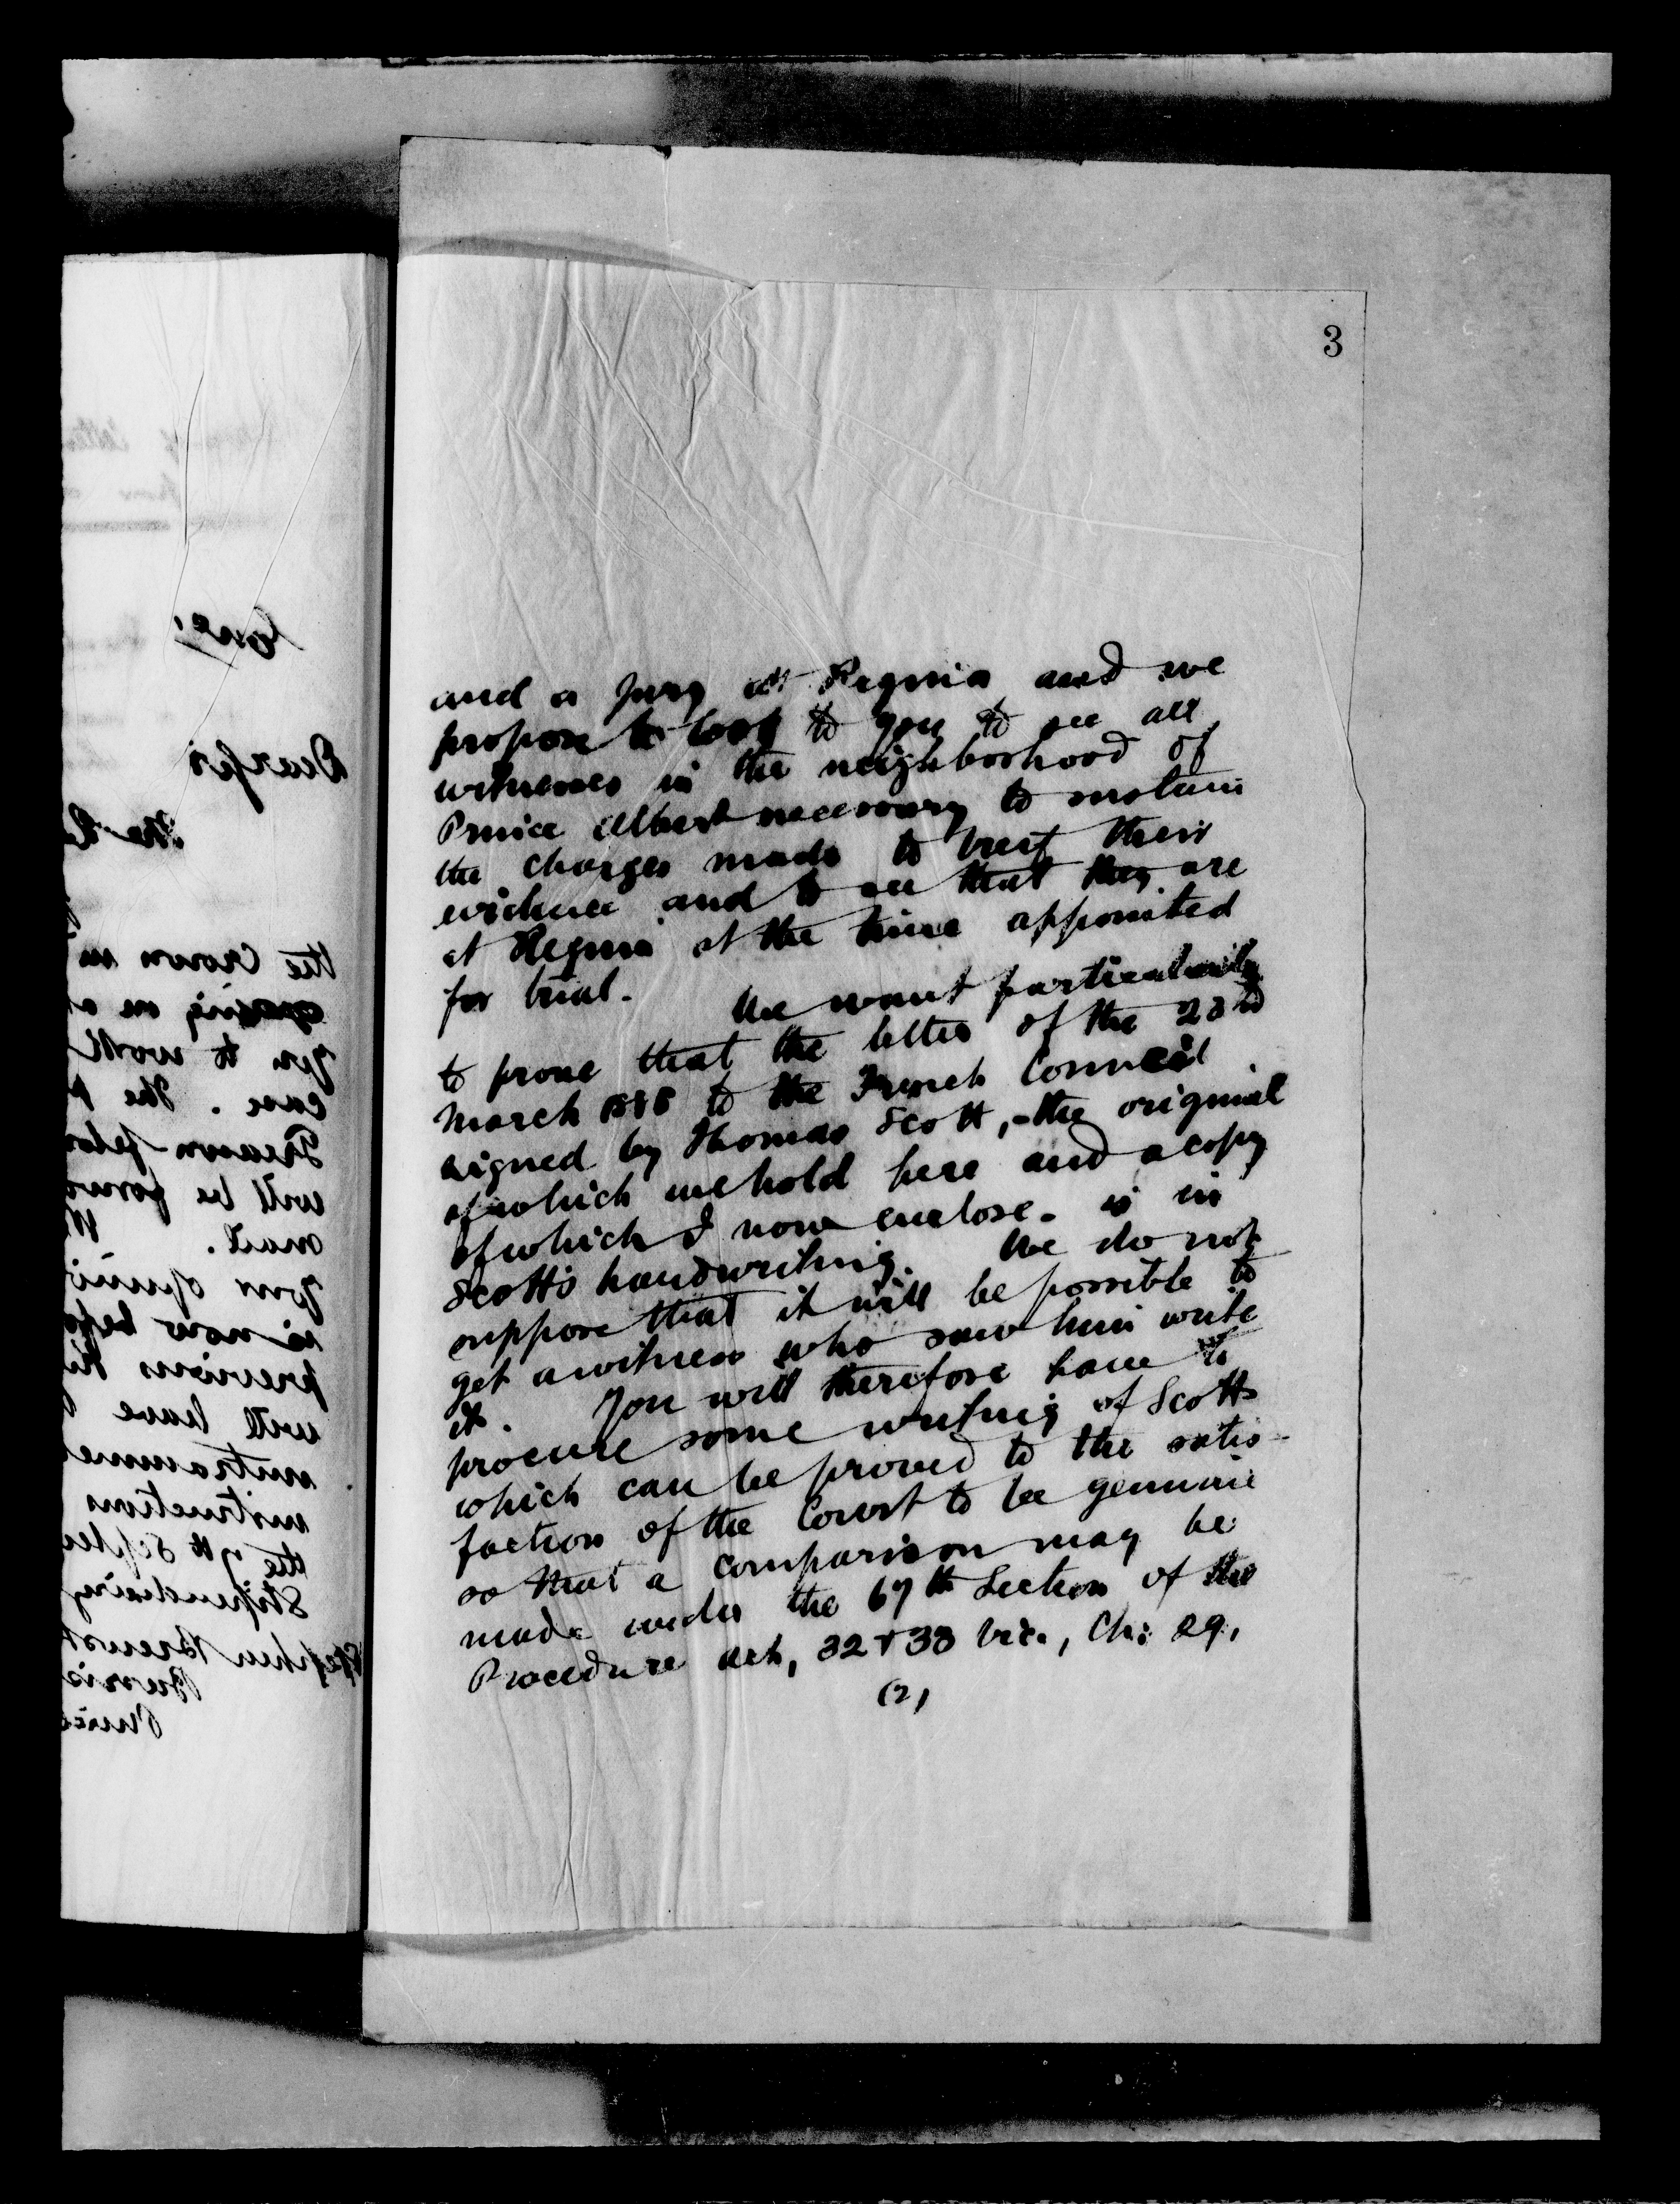 3
and a jury at Regina and we
propose to look to you to see all
witnesses in the neighborhood of
Prince Albert necessary to sustain
the charges made to breif their
evidence and to see that they are
at Regina at the time appointed
for trial. We want particularly
to prove that the letter of the 23rd
March 1885 to the French Council
signed by Thomas Scott, - the original
of which we hold here and a copy
of which I now enclose - is in
Scott's handwriting. We do not
suppose that it will be possible to
get a witness who saw him write
it. You will therefore have to
procure some writing of Scotts
which can be proved to the satis-
faction of the Court to be genuine
so that a comparison may be
made under the 67th Section of the
Procedure act, 32 & 33 Vic., Ch: 29,
(2)
Dear Sir
the Crown in
you to work
case. The
Treason felon
will be forw
mail.
your opini
is now befo
previous
will have
instructions
the 7th Septem
Stipendiary
Stephen Brewst
Prince